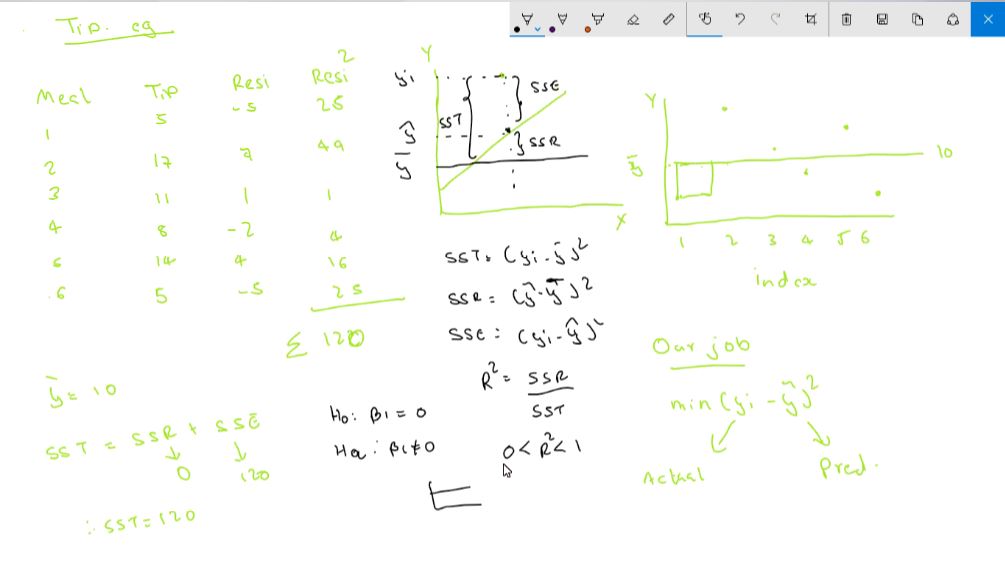 Tip. eg
Meal Tip Resi Resi²
1 5 -5 25
2 17 7 49
3 11 1 1
4 8 -2 4
5 14 4 16
6 5 -5 25
Σ 120
ȳ = 10
SST = SSR + SSE
0 120
∴ SST = 120
Y
yi
ŷ
ȳ
SST
SSE
SSR
X
SST = (yi - ȳ)²
SSR = (ŷ - ȳ)²
SSE = (yi - ŷ)²
R² = SSR
SST
H0: β1 = 0
Ha: β1 ≠ 0
0 < R² < 1
Y
ȳ
10
1 2 3 4 5 6
index
Our job
min (yi - ŷ)²
Actual Pred.